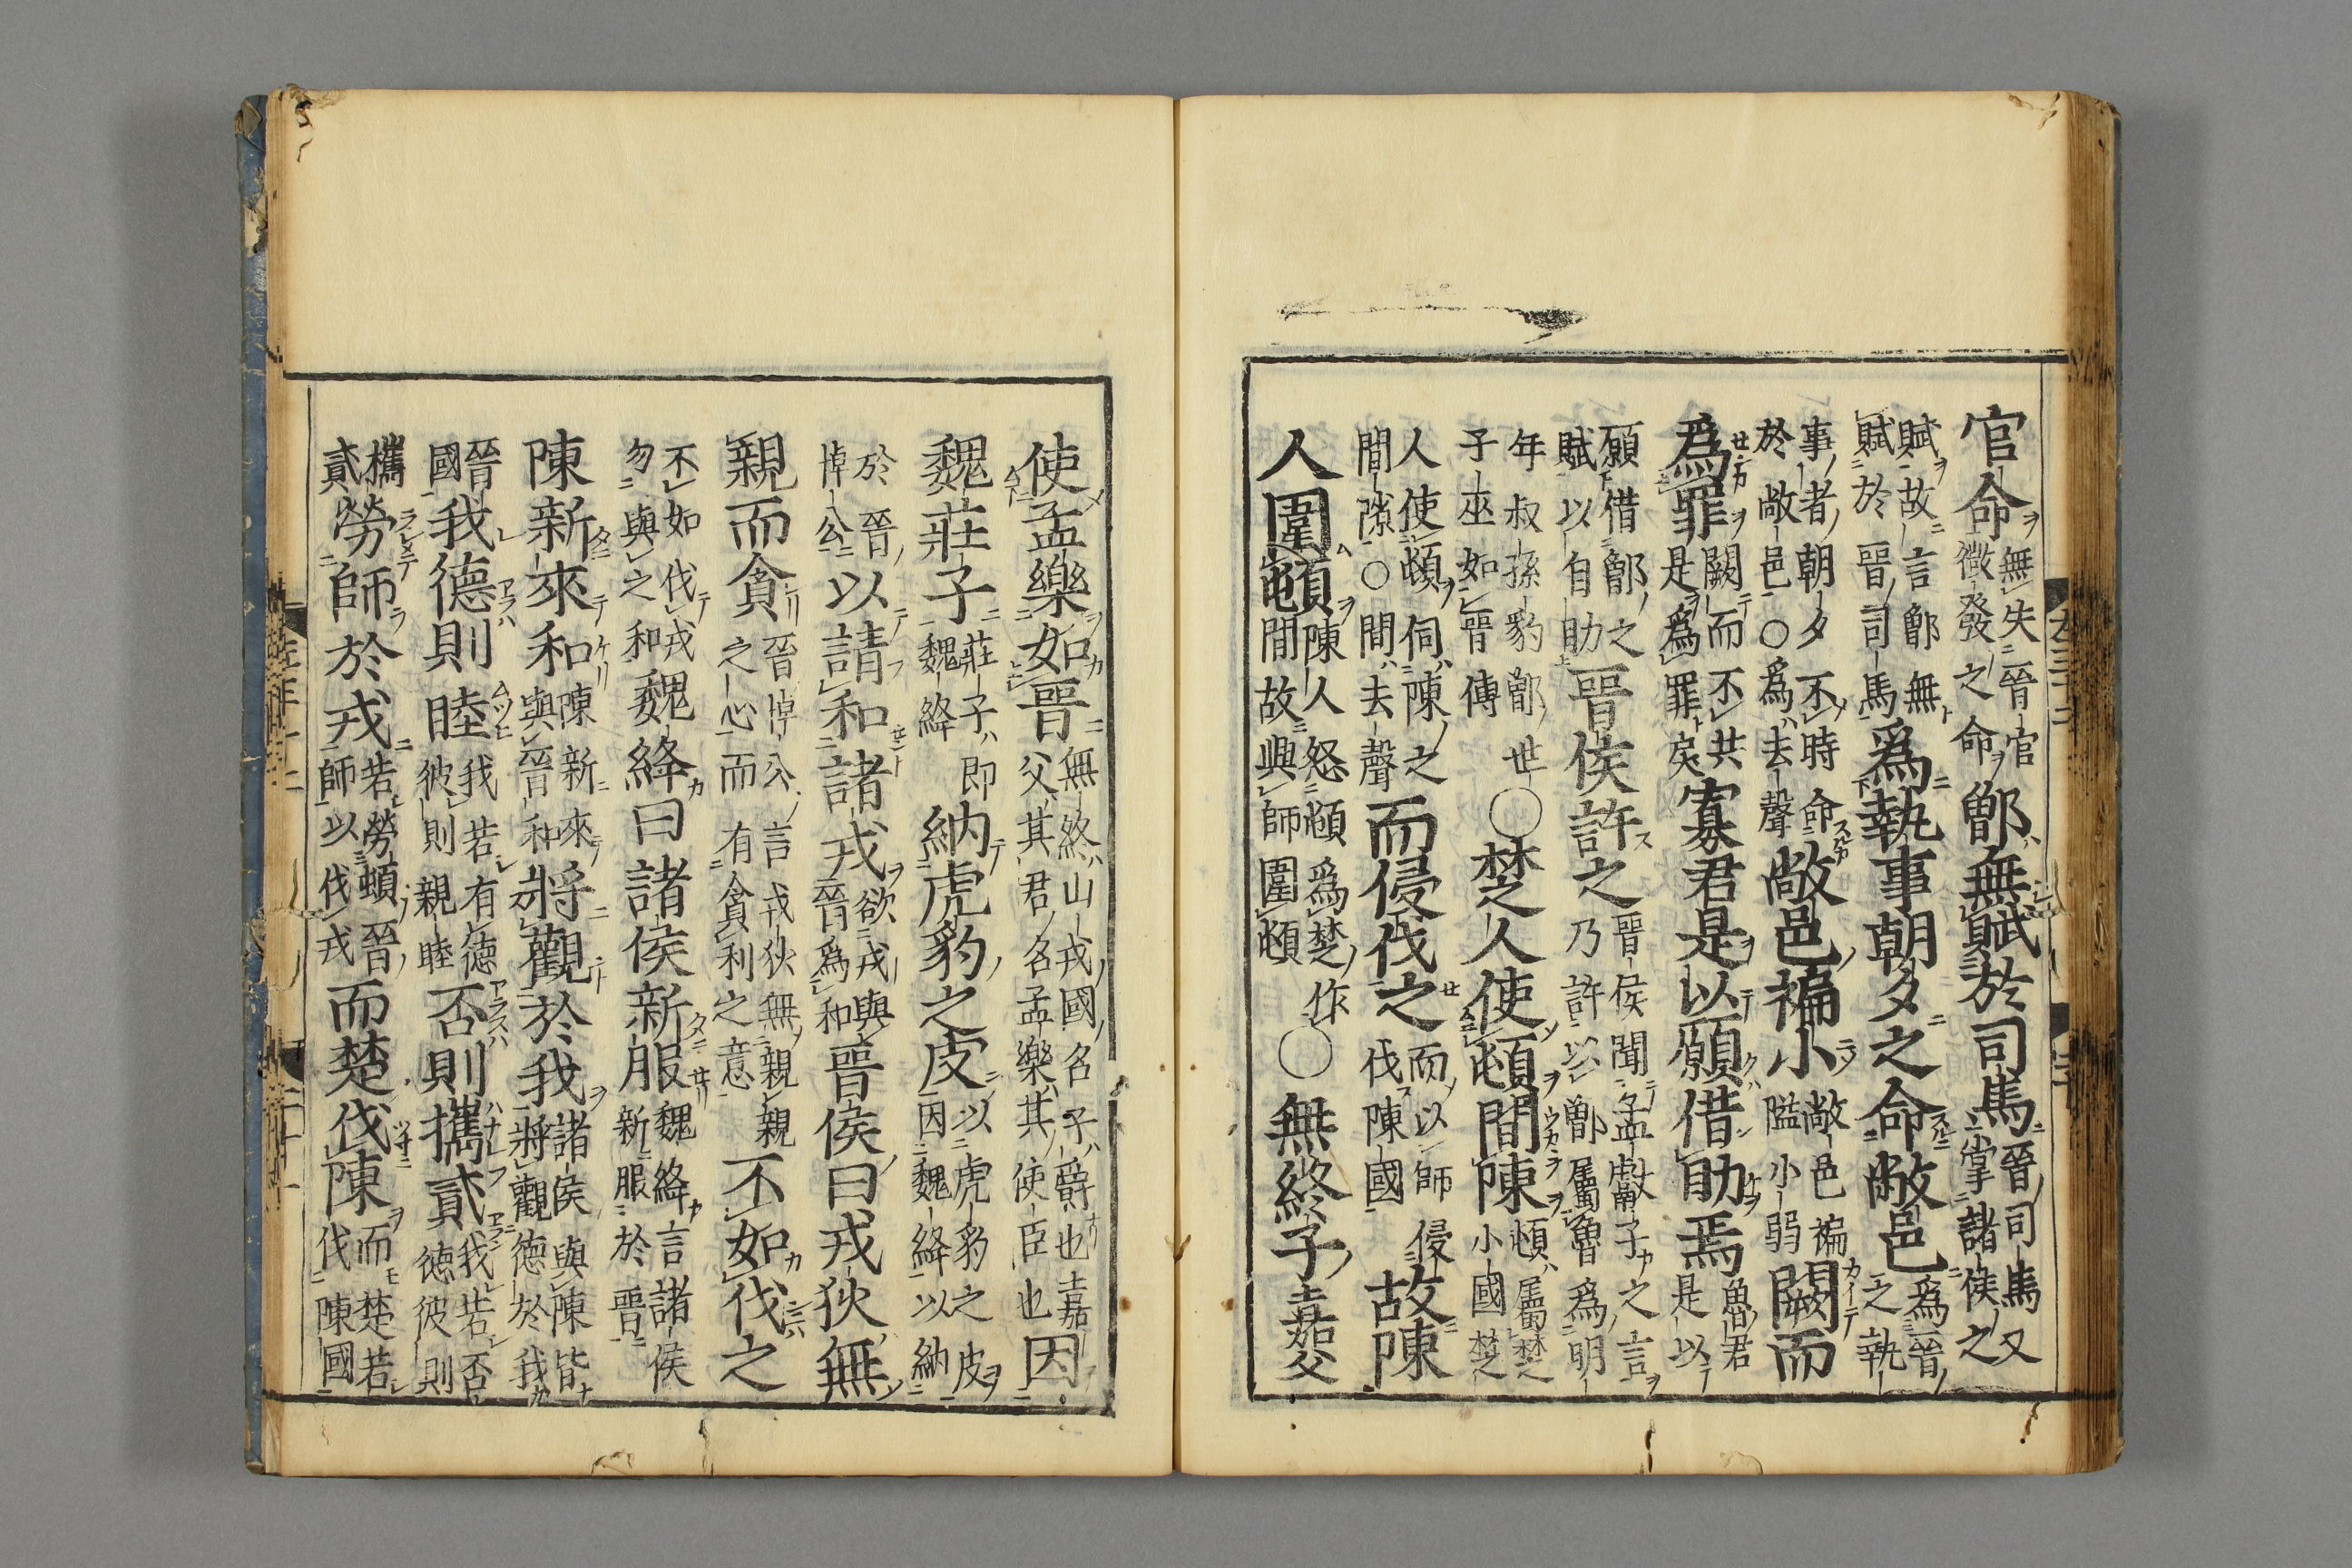 官命無失晉官徵發之命鄫無賦於司馬晉司馬又掌諸侯之
賦故言鄫無賦於晉司馬爲執事朝夕之命敝邑爲晉之執
事者朝夕不時命於敝邑○爲去聲敝邑褊小敝邑褊隘小弱闕而
爲罪闕而不共是爲罪戾寡君是以願借助焉魯君是以
願借鄫之賦以自助晉侯許之晉侯聞孟獻子之言乃許以鄫屬魯爲明
年叔孫豹鄫世子巫如晉傳○楚人使頓間陳頓屬楚小國楚
人使頓伺陳之間隙○間去聲而侵伐之而以師侵伐陳國故陳
人圍頓陳人怒頓爲楚作間故興師圍頓○無終子嘉父
使孟樂如晉無終山戎國名子爵也嘉父其君名孟樂其使臣也因
魏莊子莊子即魏絳納虎豹之皮以虎豹之皮因魏絳以納
於晉悼公以請和諸戎欲戎與晉爲和晉侯曰戎狄無
親而貪晉悼公言戎狄無親親之心而有貪利之意不如伐之
不如伐戎勿與之和魏絳曰諸侯新服魏絳言諸侯新服於晉
陳新來和陳新來與晉和將觀於我諸侯與陳皆將觀德於我
晉國我德則睦我若有德彼則親睦否則攜貳我若否德彼則
攜貳勞師於戎若勞頓晉師以伐戎而楚伐陳而楚若伐陳國